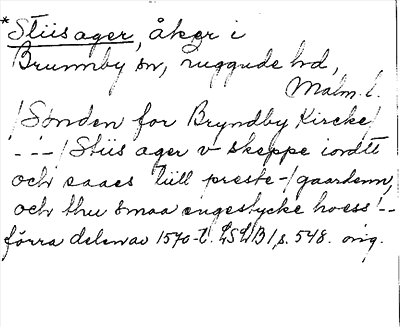 *Stiisager, åker i
Brunnby sn, Luggude hd,
Malm. l.
/Sönden for Bryndby Kircke/
-'-'-/Stiis ager v skeppe iordtt
och saaes tiill preste-/gaardenn,
och thu smaa engestycke hoess'--
förra delen av 1570-t. LSLB 1, s. 548. orig.